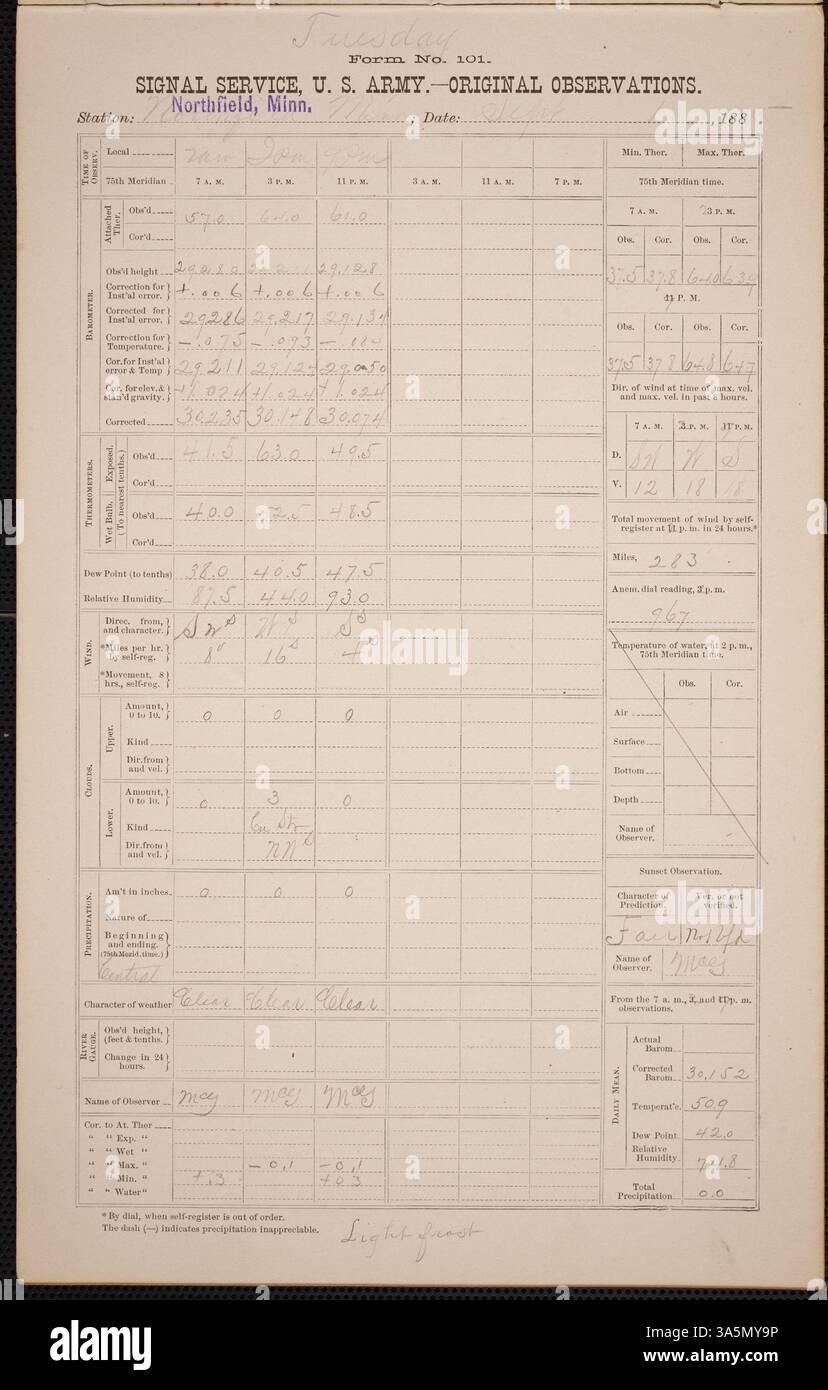 Tuesday
Form No. 101.
SIGNAL SERVICE, U. S. ARMY.—ORIGINAL OBSERVATIONS.
Northfield, Minn.
Station: , Date: Sept 188 .
TIME OF OBSERV. Local 7am 2pm 9pm Min. Ther. Max. Ther.
75th Meridian 7 A. M. 3 P. M. 11 P. M. 3 A. M. 11 A. M. 7 P. M. 75th Meridian time.
7 A. M. 3 P. M.
Attached Ther. Obs'd 57.0 64.0 61.0
Cor'd Obs. Cor. Obs. Cor.
BAROMETER.
Obs'd height 29.280 29.211 29.128 37.5 37.8 64.0 63.9
Correction for Inst'al error. +.006 +.006 +.006 P. M.
Corrected for Inst'al error. 29.286 29.217 29.134 Obs. Cor. Obs. Cor.
Correction for Temperature. -.075 -.093 -.084
Cor. for Inst'al error & Temp 29.211 29.124 29.050 37.5 37.8 64.8 64.7
Cor. for elev. & stan'd gravity. +1.024 +1.024 +1.024 Dir. of wind at time of max. vel. and max. vel. in past 8 hours.
Corrected 30.235 30.148 30.074 7 A. M. 3 P. M. 11 P. M.
THERMOMETERS. (To nearest tenths.)
Exposed. Obs'd 41.5 63.0 49.5 D. SW W S
Cor'd V. 12 18 18
Wet Bulb. Obs'd 40.0 52.5 48.5 Total movement of wind by self-register at 11 p. m. in 24 hours.*
Cor'd Miles, 283
Dew Point (to tenths) 38.0 40.5 47.5 Anem. dial reading, 3 p. m.
Relative Humidity 87.5 44.0 93.0 967
WIND.
Direc. from, and character. SW s W s S s Temperature of water, at 2 p. m., 75th Meridian time.
*Miles per hr. by self-reg. 8 16 4
*Movement, 8 hrs., self-reg. Obs. Cor.
CLOUDS.
Upper. Amount, 0 to 10. 0 0 0 Air
Kind Surface
Dir. from and vel. Bottom
Lower. Amount, 0 to 10. 0 3 0 Depth
Kind Cu Str Name of Observer.
Dir. from and vel. NW s
Sunset Observation.
PRECIPITATION.
Am't in inches 0 0 0 Character of Prediction. Ver. or not verified.
Nature of
Beginning and ending. (75th Merid. time.) Fair Not Vfd
Central Name of Observer. McG
Character of weather Clear Clear Clear From the 7 a. m., 3, and 11 p. m. observations.
RIVER GAUGE. Obs'd height, (feet & tenths. DAILY MEAN. Actual Barom
Change in 24 hours. Corrected Barom. 30.152
Name of Observer McG McG McG Temperat'e. 50.9
Cor. to At. Ther
" " Exp. " Dew Point. 42.0
" " Wet "
" " Max. " -0.1 -0.1 Relative Humidity 74.8
" " Min. " +.3 +0.3
" " Water " Total Precipitation. 0.0
* By dial, when self-register is out of order.
The dash (—) indicates precipitation inappreciable.
Light frost
alamy
3A5MY9P
www.alamy.com